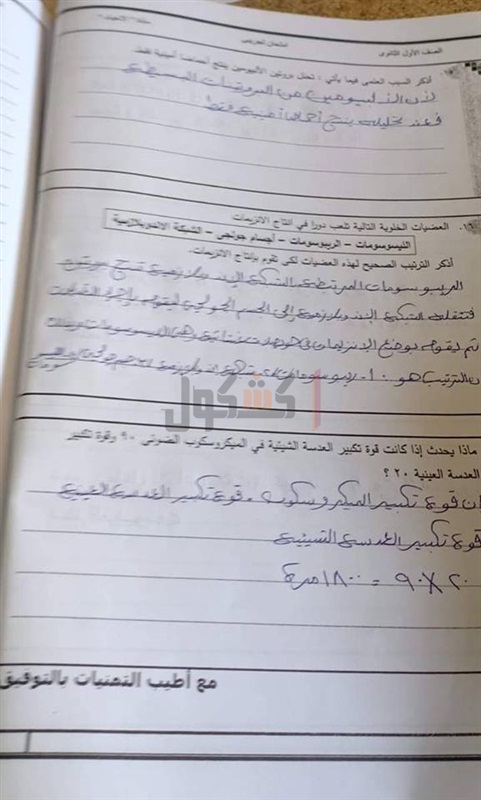 مادة / الأحياء
امتحان تجريبى
الصف الأول الثانوى
أذكر السبب العلمى فيما يأتي : تحلل بروتين الألبيومين ينتج أحماضا أمينية فقط.
لأن الألبيومين من البروتينات البسيطة
فعند تحليله ينتج أحماض أمينية فقط
العضيات الخلوية التالية تلعب دورا في انتاج الانزيمات
الليسوسومات - الريبوسومات - أجسام جولجى - الشبكة الاندوبلازمية
أذكر الترتيب الصحيح لهذه العضيات لكى تقوم بإنتاج الانزيمات.
الريبوسومات المرتبطة بالشبكة الإندوبلازمية تنتج
فتنقله الشبكة الإندوبلازمية إلى الجسم الجولجى ليقوم
ثم يقوم بوضع الإنزيمات فى حويصلات غشائية وهى الليسوسومات
الترتيب هو ١- ريبوسومات
كشكول
ماذا يحدث إذا كانت قوة تكبير العدسة الشيئية في الميكروسكوب الضوئى ٩٠ وقوة تكبير
العدسة العينية ٢٠ ؟
ان قوة تكبير الميكروسكوب = قوة تكبير العدسة العينية
قوة تكبير العدسة الشيئية
٢٠ × ٩٠ = ١٨٠٠ مرة
مع أطيب التمنيات بالتوفيق